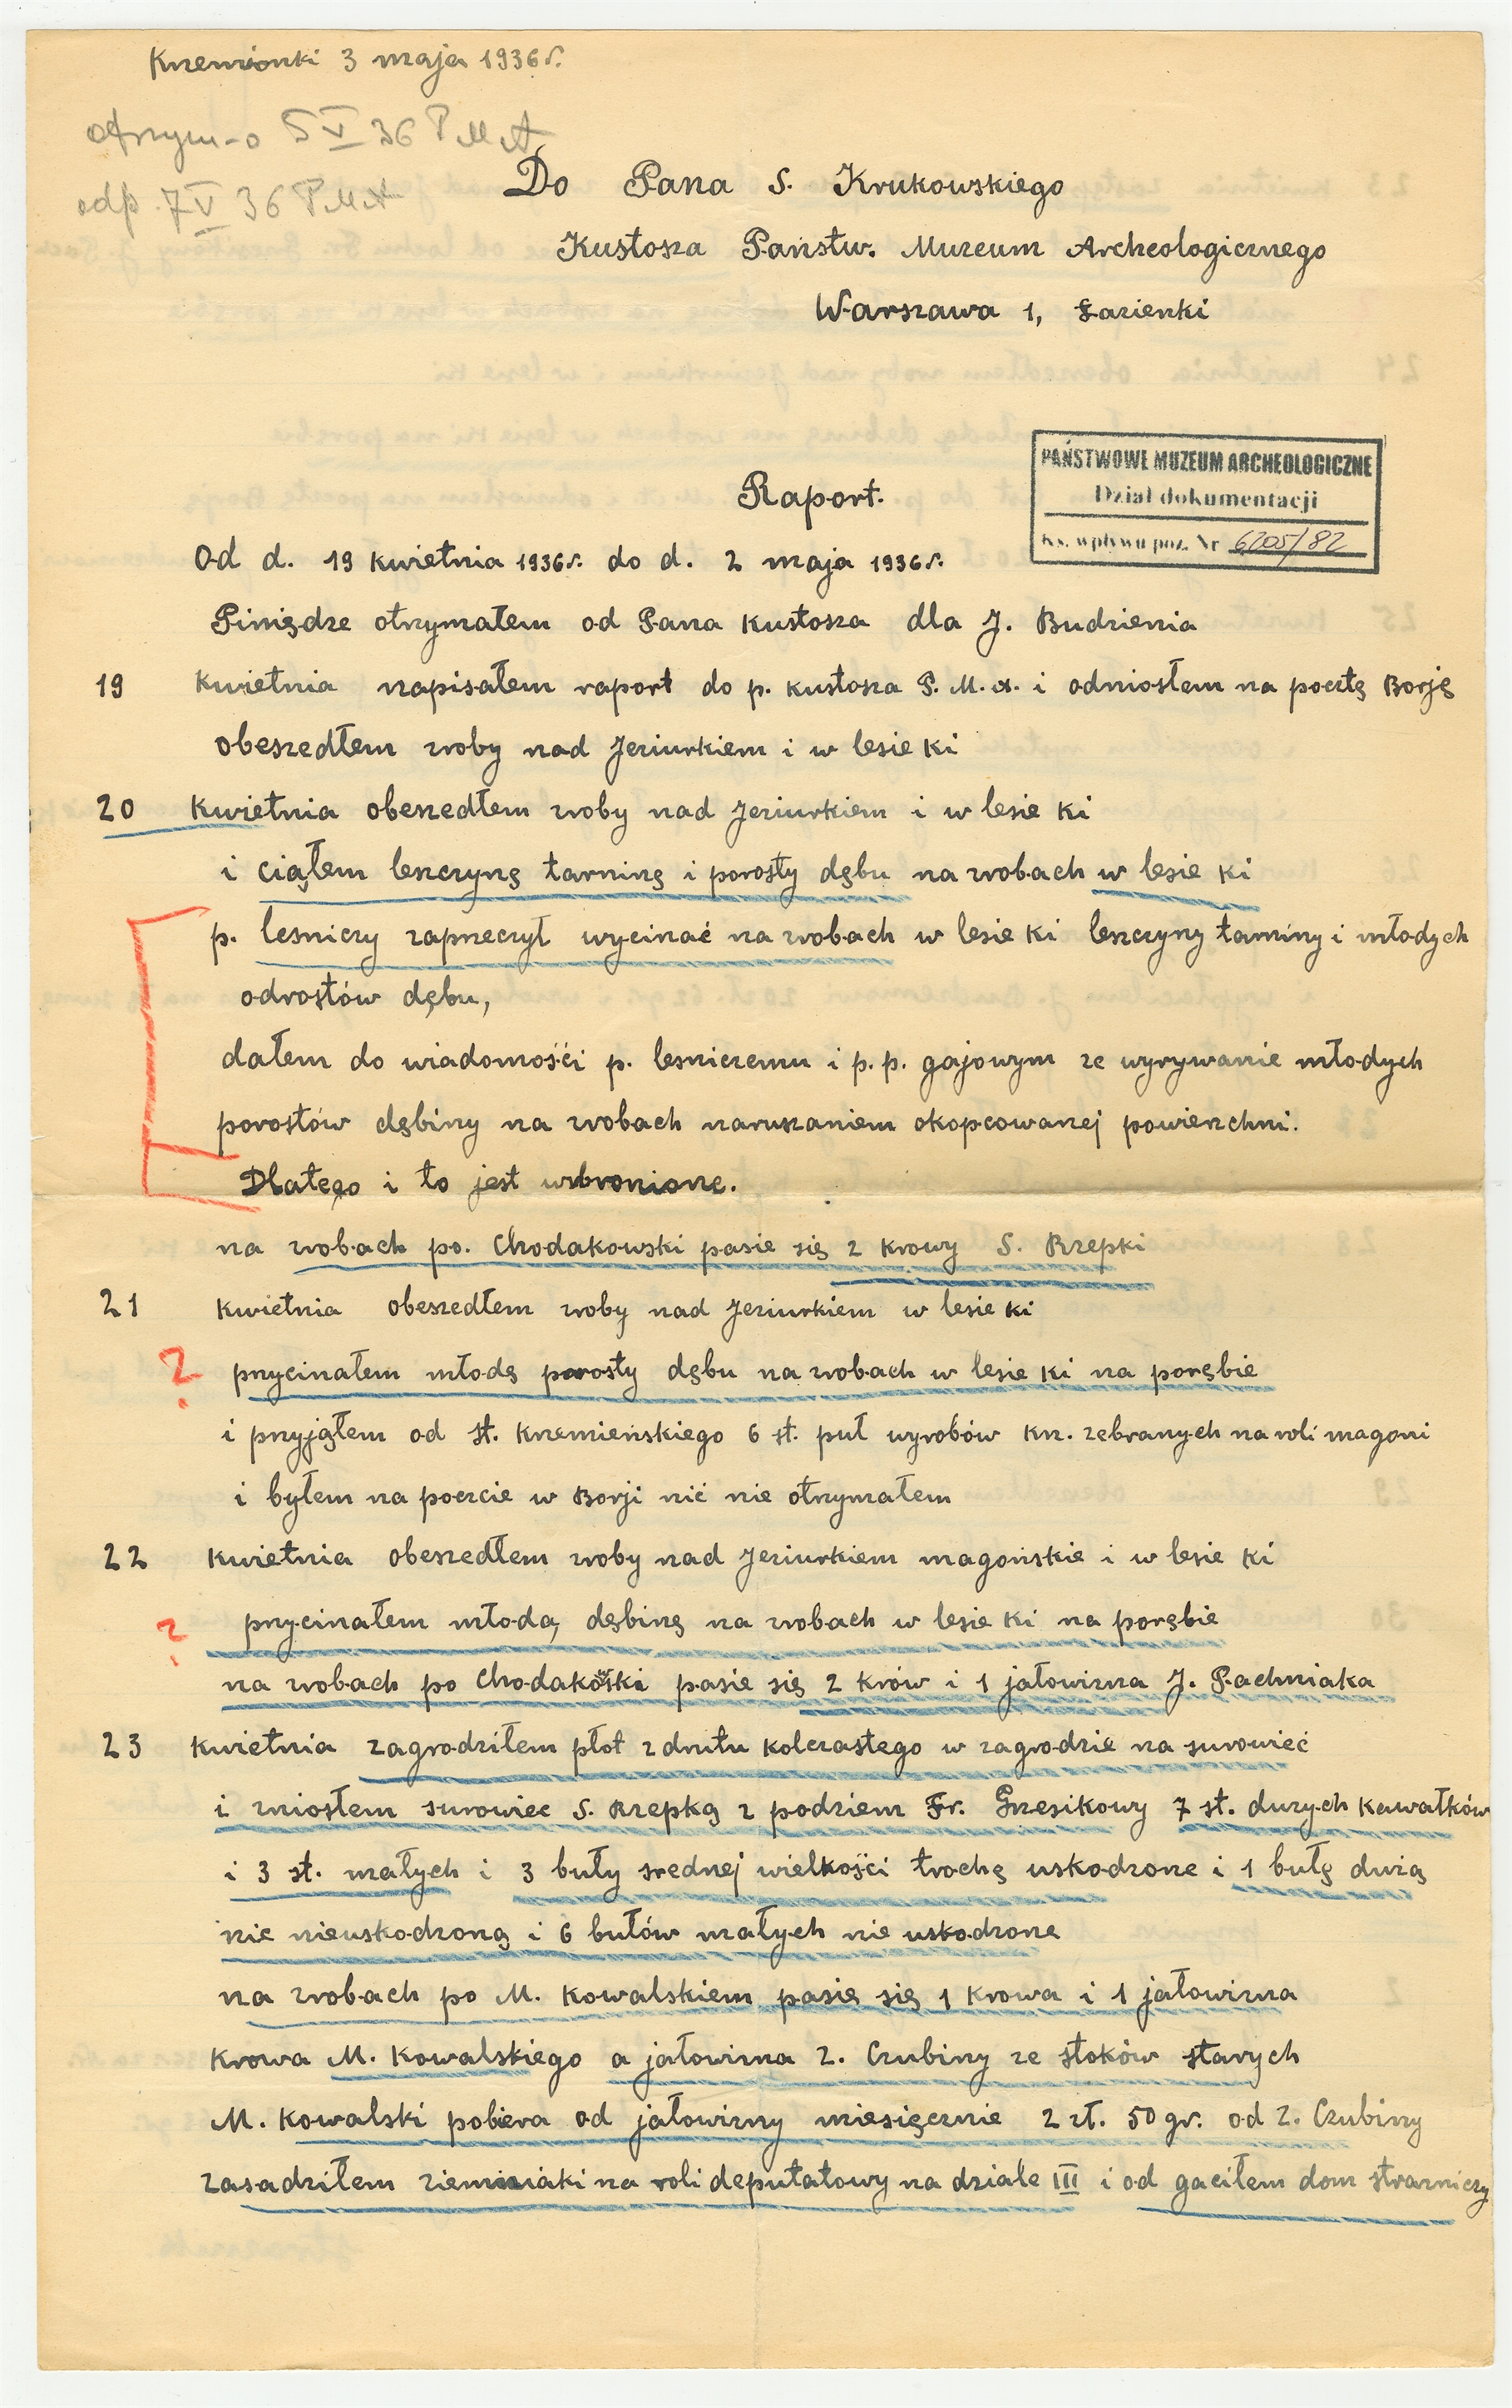 Krzemionki 3 maja 1936 r.
otrzym-o 5 V 36 PMA
odp. 7 V 36 PMA
Do Pana S. Krukowskiego
Kustosza Państw. Muzeum Archeologicznego
Warszawa 1, Łazienki
PAŃSTWOWE MUZEUM ARCHEOLOGICZNE
Dział dokumentacji
Ks. wpływu poz. Nr 6205/82
Raport.
Od d. 19 kwietnia 1936 r. do d. 2 maja 1936 r.
Piniędze otrzymałem od Pana kustosza dla J. Budzienia
19 kwietnia napisałem raport do p. kustosza P. M. A. i odniosłem na pocztę Borję
obeszedłem zroby nad Jeziurkiem i w lesie ki
20 kwietnia obeszedłem zroby nad Jeziurkiem i w lesie ki
i ciąłem leszczynę tarninę i porosty dębu na zrobach w lesie ki
p. lesniczy zaprzeczył wycinać na zrobach w lesie ki leszczyny tarniny i młodych
odrostów dębu,
dałem do wiadomośći p. lesniczemu i p. p. gajowym ze wyrywanie młodych
porostów dębiny na zrobach naruszaniem okopcowanej powierzchni.
Dlatego i to jest wzbronione.
na zrobach po. Chodakowski pasie się 2 krowy S. Rzepki
21 kwietnia obeszedłem zroby nad Jeziurkiem w lesie ki
? przycinałem młodę porosty dębu na zrobach w lesie ki na porębie
i przyjąłem od st. krzemieńskiego 6 st. puł wyrobów krz. zebranych na roli magoni
i byłem na poczcie w Borji nić nie otrzymałem
22 kwietnia obeszedłem zroby nad Jeziurkiem magońskie i w lesie ki
? przycinałem młodą dębinę na zrobach w lesie ki na porębie
na zrobach po Chodakowski pasie się 2 krów i 1 jałowizna J. Pachniaka
23 kwietnia zagrodziłem płot z drutu kolczastego w zagrodzie na surowieć
i zniosłem surowiec S. Rzepką z podziem Fr. Grzesikowy 7 st. duzych kawałków
i 3 st. małych i 3 buły srednej wielkośći trochę uskodzone i 1 bułę dużą
nie nieuskodzoną i 6 bułów małych nie uskodzone
na zrobach po M. Kowalskiem pasię się 1 krowa i 1 jałowizna
krowa M. Kowalskiego a jałowizna Z. Czubiny ze stoków starych
M. Kowalski pobiera od jałowizny miesięcznie 2 zł. 50 gr. od Z. Czubiny
zasadziłem ziemniaki na roli deputatowy na dziale III i od gaciłem dom strazniczy